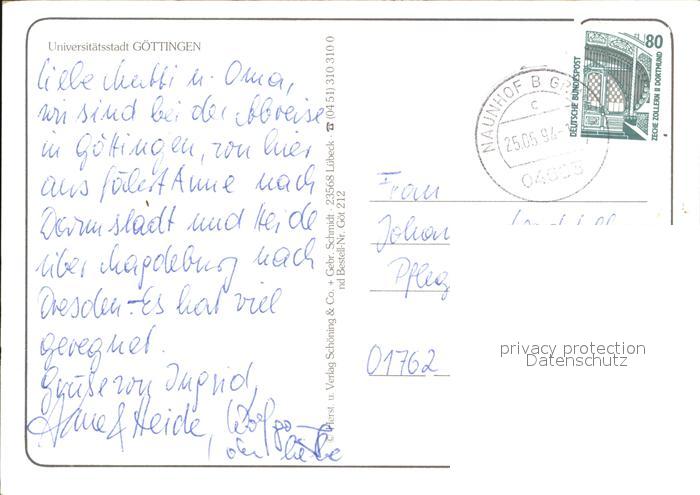 Universitätsstadt GÖTTINGEN
liebe Mutti u. Oma,
wir sind bei der Abreise
in Göttingen, von hier
aus fährt Anne nach
Darmstadt und Heide
über Magdeburg nach
Dresden. Es hat viel
geregnet.
Grüße von Ingrid,
Anne & Heide,
© Herst. u. Verlag Schöning & Co. + Gebr. Schmidt · 23568 Lübeck · ☎ (04 51) 310 310 0
nd Bestell-Nr. Göt 212
NAUNHOF B GR
c
25.06.94
04683
80
DEUTSCHE BUNDESPOST
ZECHE ZOLLERN II DORTMUND
Frau
Johan
Pfleg
01762
privacy protection
Datenschutz